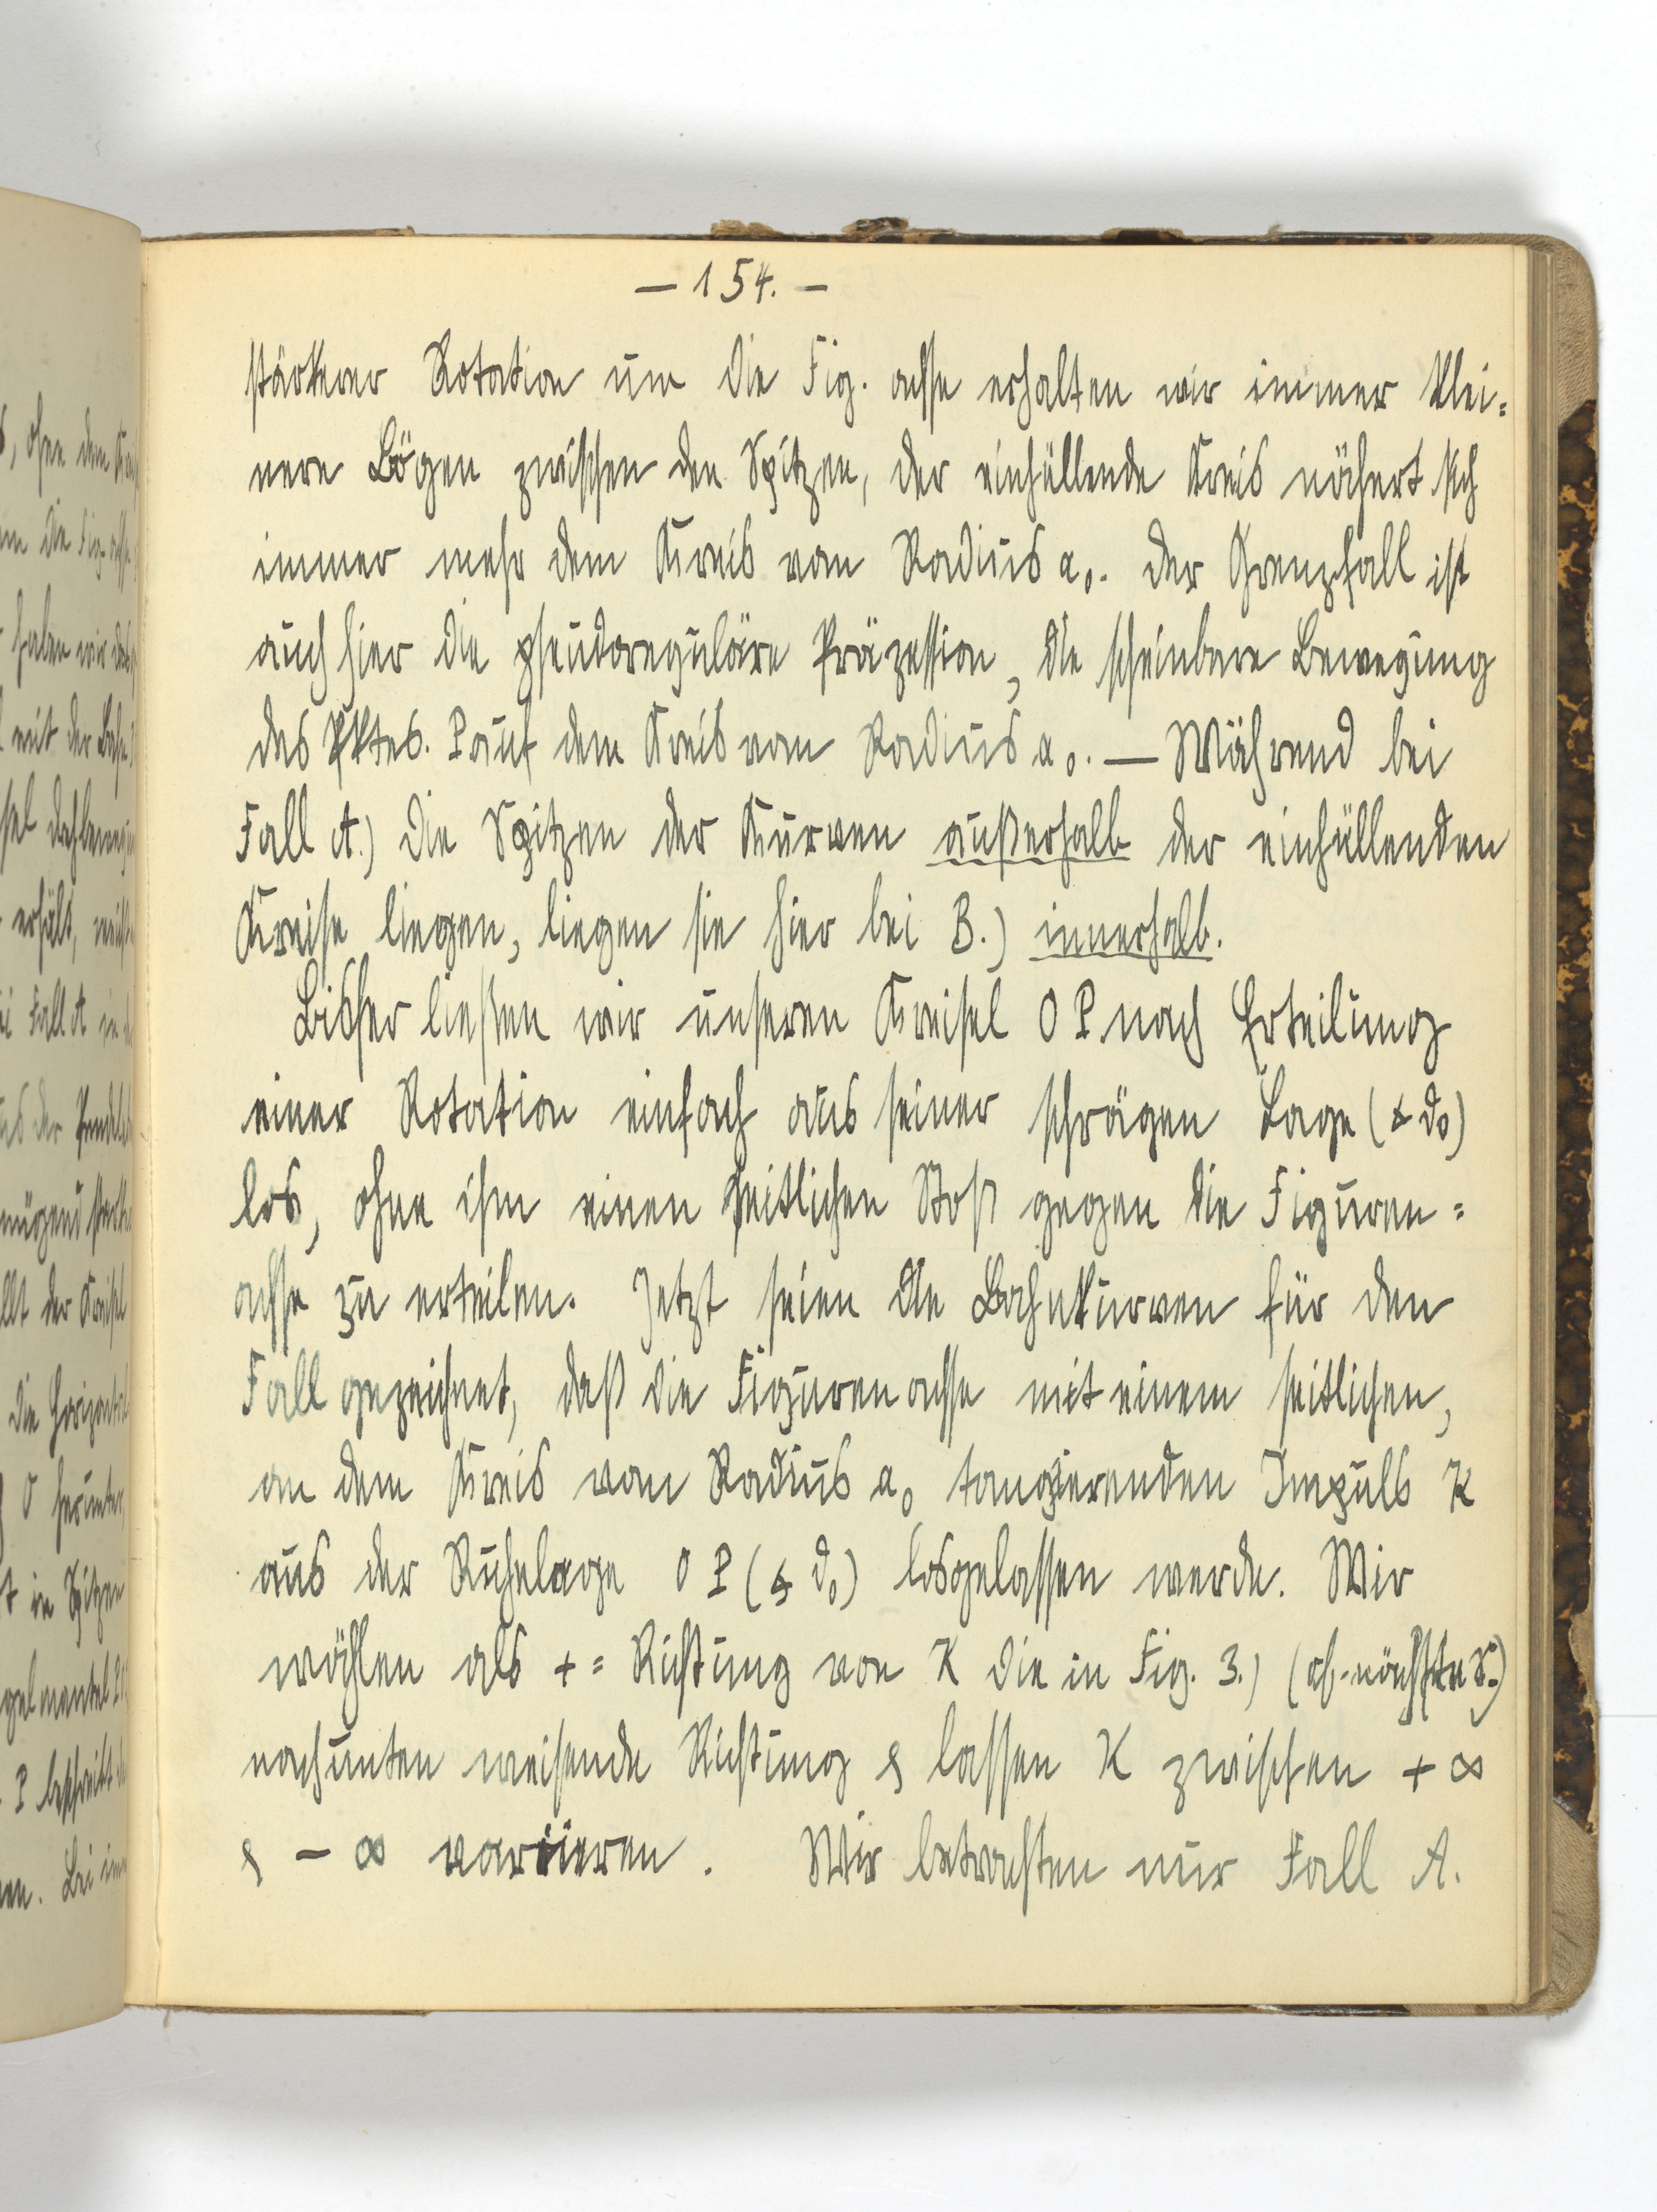 — 154. —
stärkerer Rotation um die Fig. achse erhalten wir immer klei=
nere Bögen zwischen den Spitzen, der einhüllende Kreis nähert sich
immer mehr dem Kreis vom Radius a₀. Der Grenzfall ist
auch hier die pseudoreguläre Präzession, die scheinbare Bewegung
des Pktes. P auf dem Kreis vom Radius a₀. — Während bei
Fall A.) die Spitzen der Kurven außerhalb der einhüllenden
Kreise liegen, liegen sie hier bei B.) innerhalb.
Bisher ließen wir unseren Kreisel O P nach Erteilung
einer Rotation einfach aus seiner schrägen Lage (∢ ϑ₀)
los, ohne ihm einen seitlichen Stoß gegen die Figuren=
achse zu erteilen. Jetzt seien die Bahnkurven für den
Fall gezeichnet, daß die Figurenachse mit einem seitlichen,
an dem Kreis vom Radius a₀ tangierenden Impuls K
aus der Ruhelage O P (∢ ϑ₀) losgelassen werde. Wir
wählen als + = Richtung von K die in Fig. 3.) (cf. nächste S.)
nach unten weisende Richtung & lassen K zwischen + ∞
& − ∞ variieren. Wir betrachten nur Fall A.